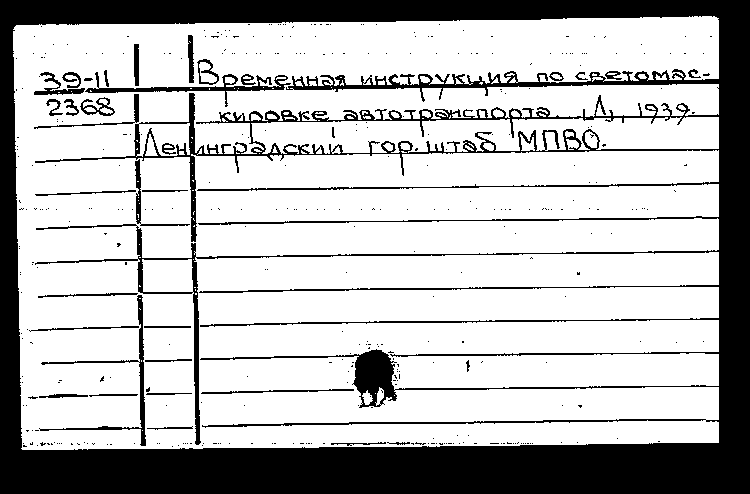 39-11 Временная инструкция по светомас-
2368 кировке автотранспорта. Л., 1939.
Ленинградский гор. штаб МПВО.